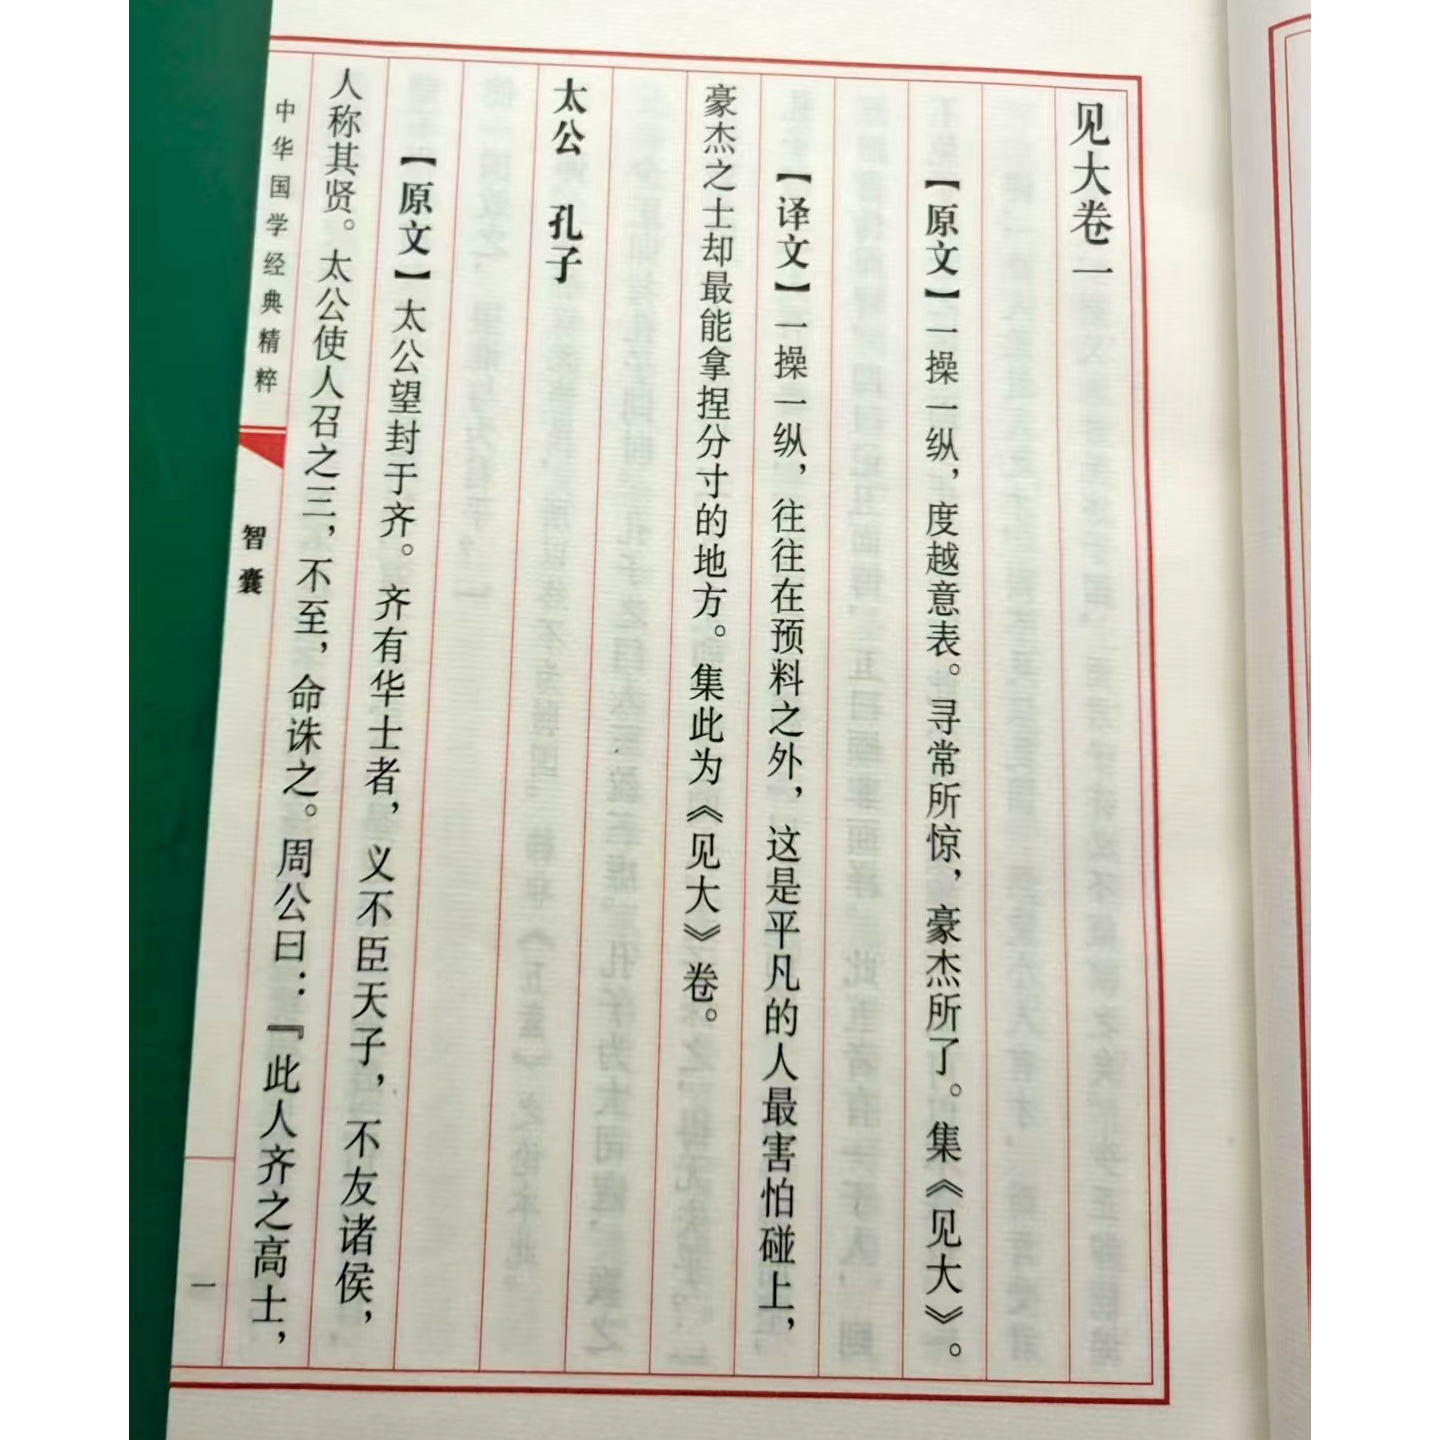 见大卷一
【原文】一操一纵，度越意表。寻常所惊，豪杰所了。集《见大》。
【译文】一操一纵，往往在预料之外，这是平凡的人最害怕碰上，
豪杰之士却最能拿捏分寸的地方。集此为《见大》卷。
太公 孔子
【原文】太公望封于齐。齐有华士者，义不臣天子，不友诸侯，
人称其贤。太公使人召之三，不至，命诛之。周公曰：『此人齐之高士，
中华国学经典精粹
智囊
一